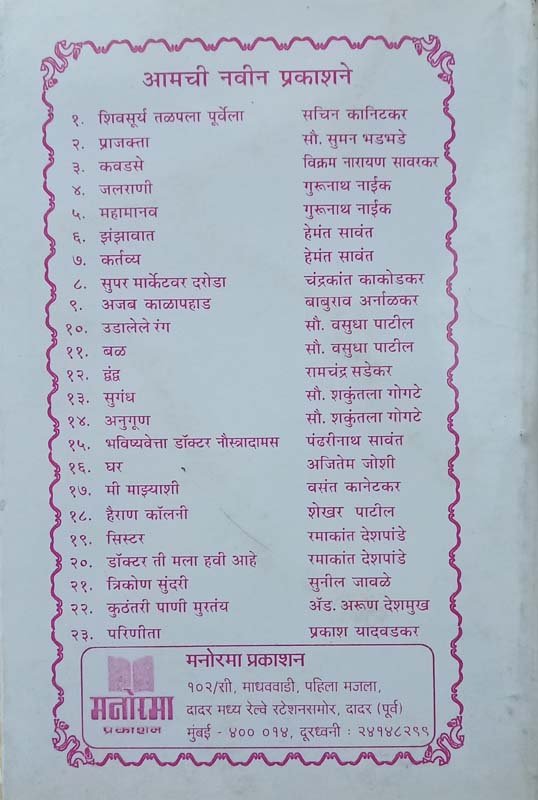 आमची नवीन प्रकाशने
१. शिवसूर्य तळपला पूर्वेला सचिन कानिटकर
२. प्राजक्ता सौ. सुमन भडभडे
३. कवडसे विक्रम नारायण सावरकर
४. जलराणी गुरूनाथ नाईक
५. महामानव गुरूनाथ नाईक
६. झंझावात हेमंत सावंत
७. कर्तव्य हेमंत सावंत
८. सुपर मार्केटवर दरोडा चंद्रकांत काकोडकर
९. अजब काळापहाड बाबुराव अर्नाळकर
१०. उडालेले रंग सौ. वसुधा पाटील
११. बळ सौ. वसुधा पाटील
१२. द्वंद्व रामचंद्र सडेकर
१३. सुगंध सौ. शकुंतला गोगटे
१४. अनुगूण सौ. शकुंतला गोगटे
१५. भविष्यवेत्ता डॉक्टर नौस्त्रादामस पंढरीनाथ सावंत
१६. घर अजितेम जोशी
१७. मी माझ्याशी वसंत कानेटकर
१८. हैराण कॉलनी शेखर पाटील
१९. सिस्टर रमाकांत देशपांडे
२०. डॉक्टर ती मला हवी आहे रमाकांत देशपांडे
२१. त्रिकोण सुंदरी सुनील जावळे
२२. कुठंतरी पाणी मुरतंय ॲड. अरूण देशमुख
२३. परिणीता प्रकाश यादवडकर
मनोरमा
प्रकाशन
मनोरमा प्रकाशन
१०२/सी, माधववाडी, पहिला मजला,
दादर मध्य रेल्वे रटेशनसामोर, दादर (पूर्व)
मुंबई - ४०० ०१४, दूरध्वनी : २४१४८२९९